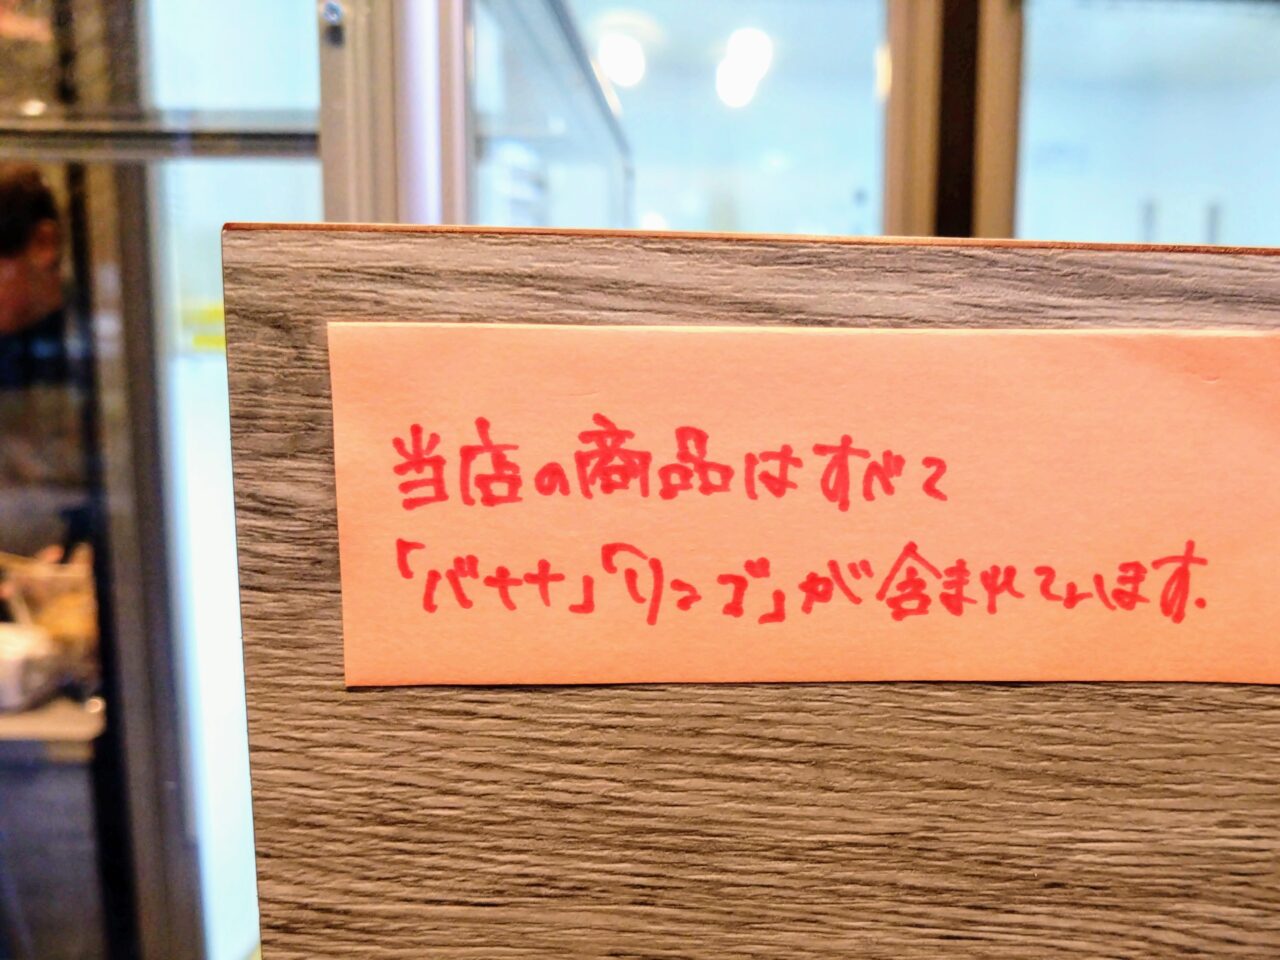 当店の商品はすべて
「バナナ」「リンゴ」が含まれています.